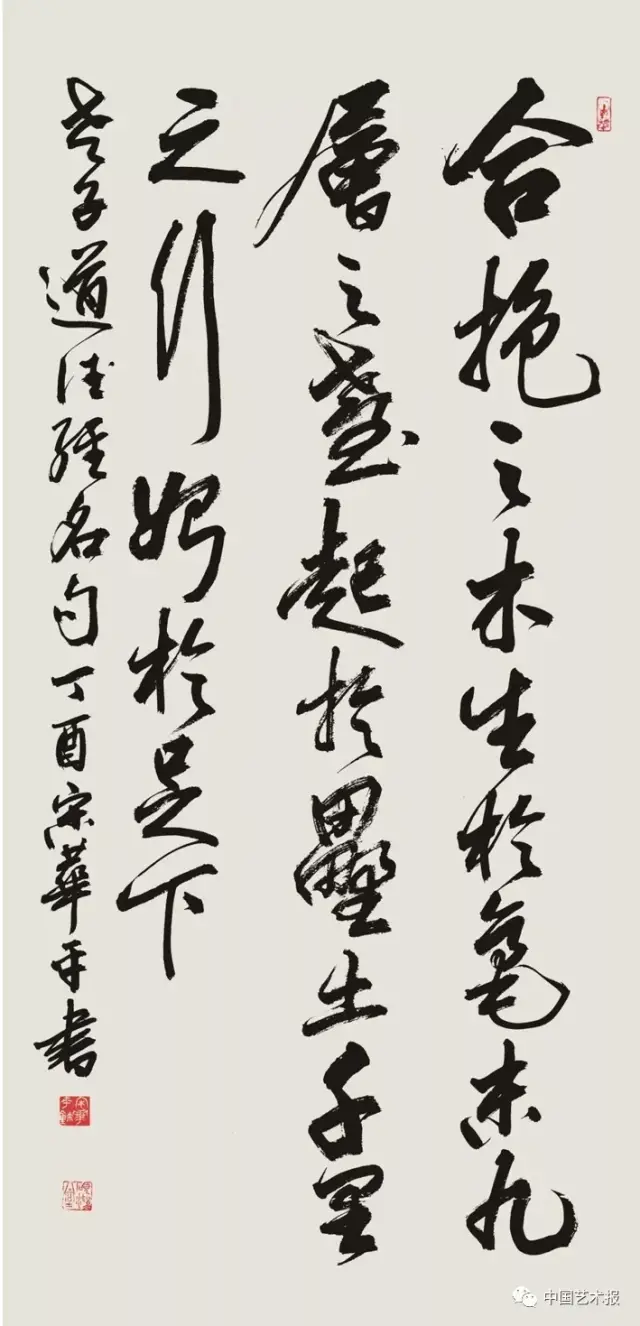 合抱之木生於毫末九
層之臺起於壘土千里
之行始於足下
老子道德經名句丁酉宋華平書
中国艺术报